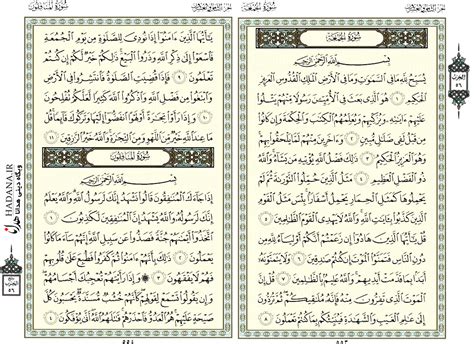 سُورَةُ الجُمُعَةِ
بِسْمِ اللَّهِ الرَّحْمَٰنِ الرَّحِيمِ
يُسَبِّحُ لِلَّهِ مَا فِي السَّمَٰوَٰتِ وَمَا فِي الْأَرْضِ الْمَلِكِ الْقُدُّوسِ الْعَزِيزِ
الْحَكِيمِ ۝١ هُوَ الَّذِي بَعَثَ فِي الْأُمِّيِّـۧنَ رَسُولًا مِّنْهُمْ يَتْلُوا۟
عَلَيْهِمْ ءَايَٰتِهِ وَيُزَكِّيهِمْ وَيُعَلِّمُهُمُ الْكِتَٰبَ وَالْحِكْمَةَ وَإِن كَانُوا۟
مِن قَبْلُ لَفِي ضَلَٰلٍ مُّبِينٍ ۝٢ وَءَاخَرِينَ مِنْهُمْ لَمَّا يَلْحَقُوا۟ بِهِمْ
وَهُوَ الْعَزِيزُ الْحَكِيمُ ۝٣ ذَٰلِكَ فَضْلُ اللَّهِ يُؤْتِيهِ مَن يَشَآءُ وَاللَّهُ
ذُو الْفَضْلِ الْعَظِيمِ ۝٤ مَثَلُ الَّذِينَ حُمِّلُوا۟ التَّوْرَىٰةَ ثُمَّ لَمْ
يَحْمِلُوهَا كَمَثَلِ الْحِمَارِ يَحْمِلُ أَسْفَارًا بِئْسَ مَثَلُ الْقَوْمِ
الَّذِينَ كَذَّبُوا۟ بِـَٔايَٰتِ اللَّهِ وَاللَّهُ لَا يَهْدِي الْقَوْمَ الظَّٰلِمِينَ ۝٥
قُلْ يَٰٓأَيُّهَا الَّذِينَ هَادُوٓا۟ إِن زَعَمْتُمْ أَنَّكُمْ أَوْلِيَآءُ لِلَّهِ مِن دُونِ
النَّاسِ فَتَمَنَّوُا۟ الْمَوْتَ إِن كُنتُمْ صَٰدِقِينَ ۝٦ وَلَا يَتَمَنَّوْنَهُۥٓ
أَبَدًۢا بِمَا قَدَّمَتْ أَيْدِيهِمْ وَاللَّهُ عَلِيمٌۢ بِالظَّٰلِمِينَ ۝٧ قُلْ إِنَّ
الْمَوْتَ الَّذِي تَفِرُّونَ مِنْهُ فَإِنَّهُۥ مُلَٰقِيكُمْ ثُمَّ تُرَدُّونَ
إِلَىٰ عَٰلِمِ الْغَيْبِ وَالشَّهَٰدَةِ فَيُنَبِّئُكُم بِمَا كُنتُمْ تَعْمَلُونَ ۝٨
٥٥٣
سُورَةُ المُنَافِقُونَ
يَٰٓأَيُّهَا الَّذِينَ ءَامَنُوٓا۟ إِذَا نُودِيَ لِلصَّلَوٰةِ مِن يَوْمِ الْجُمُعَةِ
فَاسْعَوْا۟ إِلَىٰ ذِكْرِ اللَّهِ وَذَرُوا۟ الْبَيْعَ ذَٰلِكُمْ خَيْرٌ لَّكُمْ إِن كُنتُمْ
تَعْلَمُونَ ۝٩ فَإِذَا قُضِيَتِ الصَّلَوٰةُ فَانتَشِرُوا۟ فِي الْأَرْضِ
وَابْتَغُوا۟ مِن فَضْلِ اللَّهِ وَاذْكُرُوا۟ اللَّهَ كَثِيرًا لَّعَلَّكُمْ تُفْلِحُونَ
۝١٠ وَإِذَا رَأَوْا۟ تِجَٰرَةً أَوْ لَهْوًا انفَضُّوٓا۟ إِلَيْهَا وَتَرَكُوكَ قَآئِمًا قُلْ
مَا عِندَ اللَّهِ خَيْرٌ مِّنَ اللَّهْوِ وَمِنَ التِّجَٰرَةِ وَاللَّهُ خَيْرُ الرَّٰزِقِينَ ۝١١
سُورَةُ المُنَافِقُونَ
بِسْمِ اللَّهِ الرَّحْمَٰنِ الرَّحِيمِ
إِذَا جَآءَكَ الْمُنَٰفِقُونَ قَالُوا۟ نَشْهَدُ إِنَّكَ لَرَسُولُ اللَّهِ وَاللَّهُ يَعْلَمُ
إِنَّكَ لَرَسُولُهُۥ وَاللَّهُ يَشْهَدُ إِنَّ الْمُنَٰفِقِينَ لَكَٰذِبُونَ ۝١
اتَّخَذُوٓا۟ أَيْمَٰنَهُمْ جُنَّةً فَصَدُّوا۟ عَن سَبِيلِ اللَّهِ إِنَّهُمْ سَآءَ مَا كَانُوا۟
يَعْمَلُونَ ۝٢ ذَٰلِكَ بِأَنَّهُمْ ءَامَنُوا۟ ثُمَّ كَفَرُوا۟ فَطُبِعَ عَلَىٰ قُلُوبِهِمْ
فَهُمْ لَا يَفْقَهُونَ ۝٣ وَإِذَا رَأَيْتَهُمْ تُعْجِبُكَ أَجْسَامُهُمْ
وَإِن يَقُولُوا۟ تَسْمَعْ لِقَوْلِهِمْ كَأَنَّهُمْ خُشُبٌ مُّسَنَّدَةٌ يَحْسَبُونَ كُلَّ
صَيْحَةٍ عَلَيْهِمْ هُمُ الْعَدُوُّ فَاحْذَرْهُمْ قَٰتَلَهُمُ اللَّهُ أَنَّىٰ يُؤْفَكُونَ ۝٤
٥٥٤
HADANA.IR